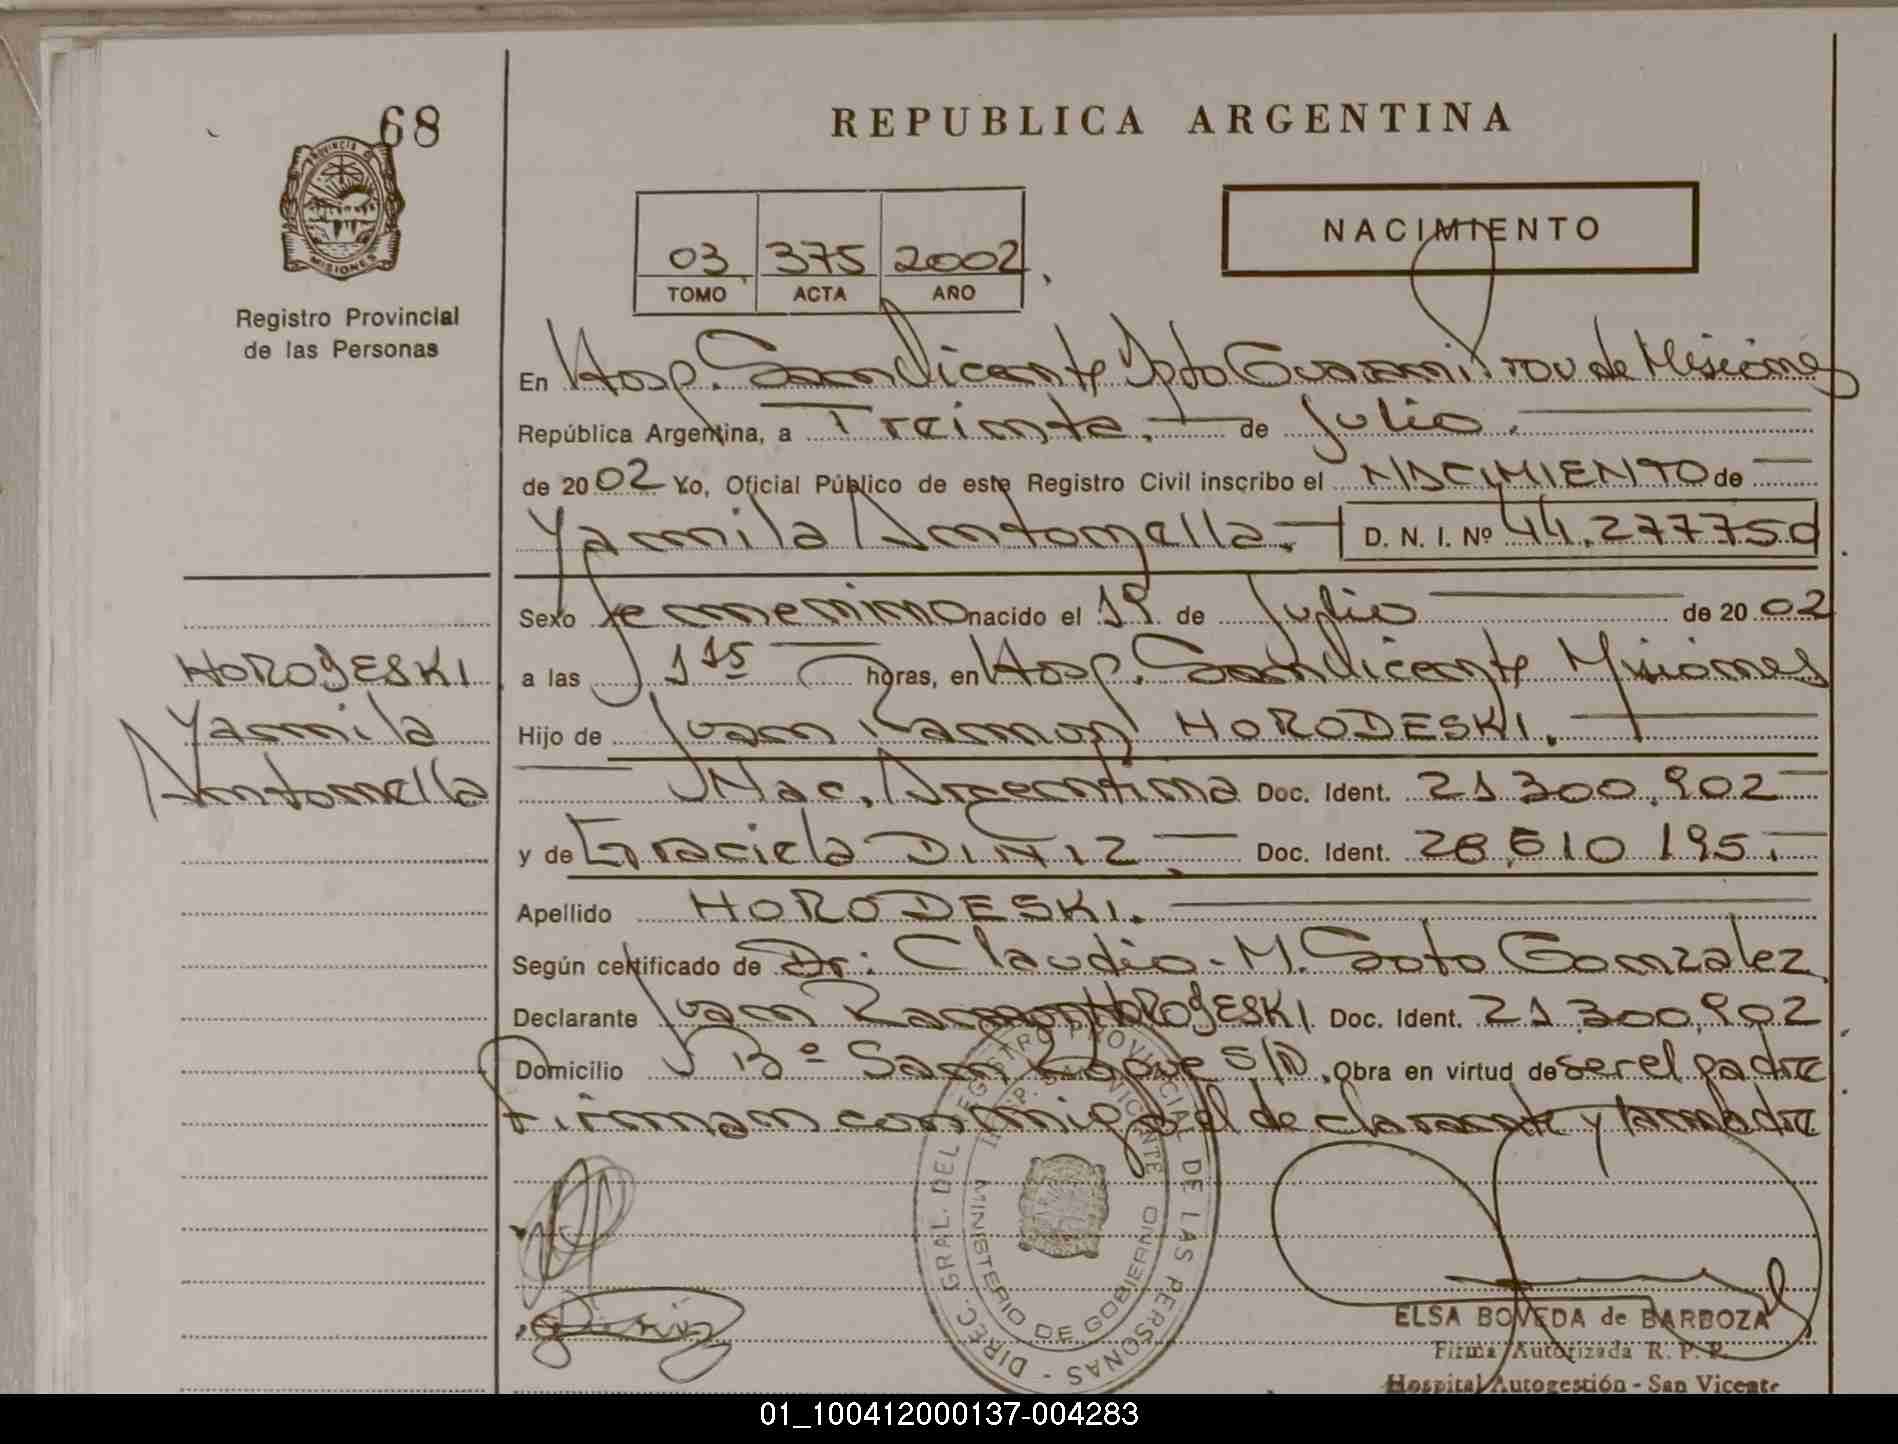 68
REPUBLICA ARGENTINA
PROVINCIA D
MISIONES
Registro Provincial
de las Personas
03 375 2002
TOMO ACTA AÑO
NACIMIENTO
En Hosp. San Vicente Dpto Guarani Prov de Misiones
República Argentina, a Treinta. de Julio.
de 2002 Yo, Oficial Público de este Registro Civil inscribo el NACIMIENTO de
Yamila Antonella. D. N. I. Nº 44.277750
Sexo femenino nacido el 19 de Julio de 2002
a las 1 15 horas, en Hosp. San Vicente Misiones
Hijo de Juan Ramon HORODESKI.
Nac. Argentina Doc. Ident. 21300.902
y de Graciela DINIZ. Doc. Ident. 28.610 195.
Apellido HORODESKI.
Según certificado de Dr: Claudio. M. Soto Gonzalez
Declarante Juan Ramon HORODESKI Doc. Ident. 21300.902
Domicilio Bº San Roque S/N. Obra en virtud de ser el padre
Firman conmigo el declarante y la madre
HORODESKI
Yamila
Antonella
DIREC. GRAL. DEL REGISTRO PROVINCIAL DE LAS PERSONAS -
HOSP. SAN VICENTE
MINISTERIO DE GOBIERNO
ELSA BOVEDA de BARBOZA
Firma Autorizada R. P. P.
Hospital Autogestión - San Vicente
01_100412000137-004283